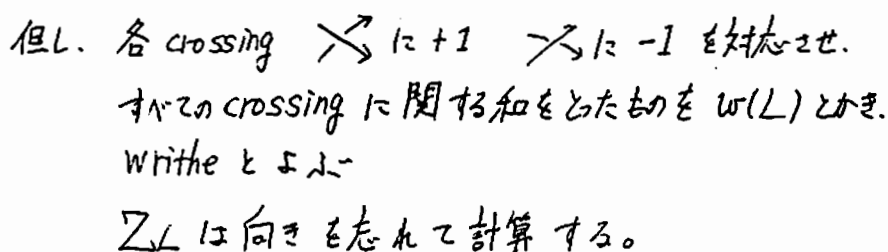 但し、各 crossing に +1 に -1 を対応させ、
すべての crossing に関する和をとったものを w(L) とかき、
writhe とよぶ
Z_L は向きを忘れて計算する。